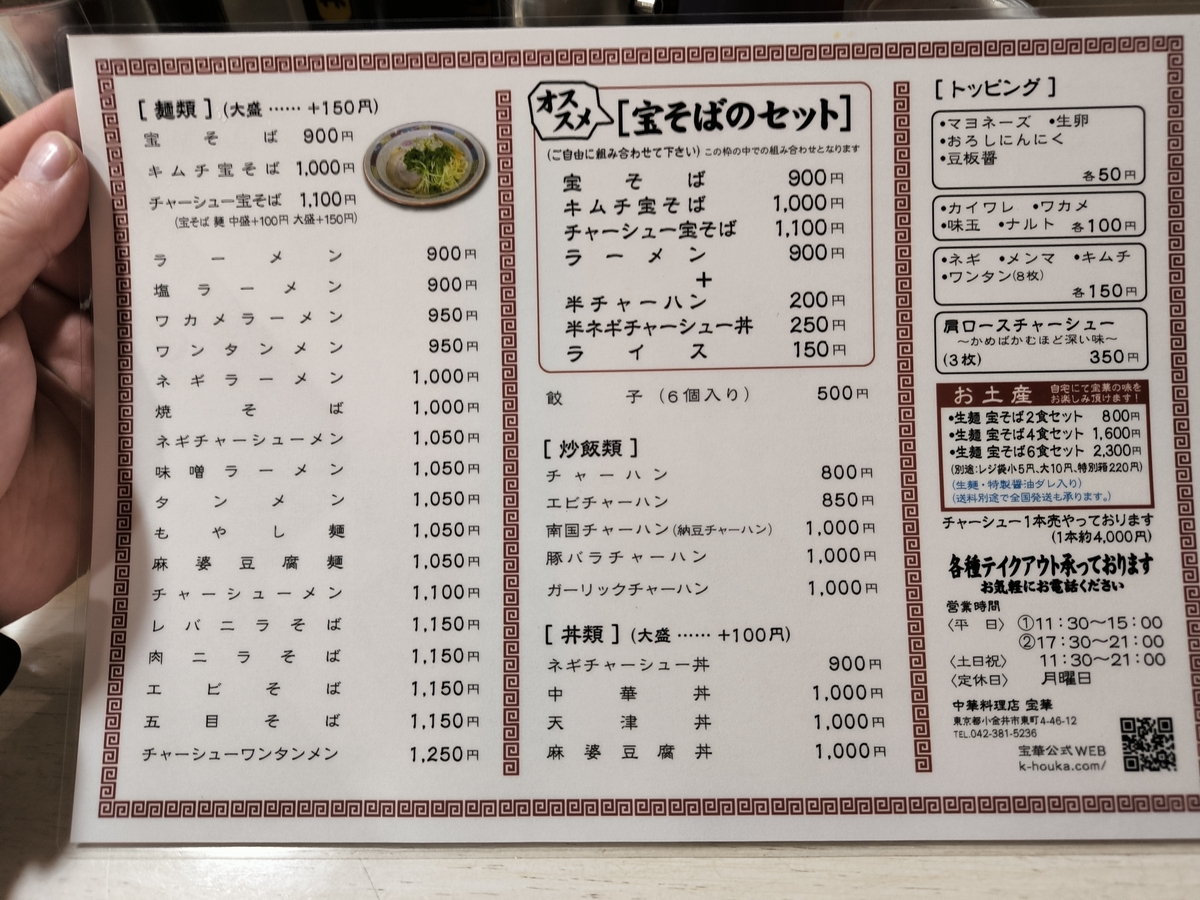 [ 麺類 ] (大盛 …… +150円)
宝そば 900円
キムチ宝そば 1,000円
チャーシュー宝そば 1,100円
(宝そば 麺 中盛+100円 大盛+150円)
ラーメン 900円
塩ラーメン 900円
ワカメラーメン 950円
ワンタンメン 950円
ネギラーメン 1,000円
焼そば 1,000円
ネギチャーシューメン 1,050円
味噌ラーメン 1,050円
タンメン 1,050円
もやし麺 1,050円
麻婆豆腐麺 1,050円
チャーシューメン 1,100円
レバニラそば 1,150円
肉ニラそば 1,150円
エビそば 1,150円
五目そば 1,150円
チャーシューワンタンメン 1,250円
オススメ [宝そばのセット]
(ご自由に組み合わせて下さい) この枠の中での組み合わせとなります
宝そば 900円
キムチ宝そば 1,000円
チャーシュー宝そば 1,100円
ラーメン 900円
+
半チャーハン 200円
半ネギチャーシュー丼 250円
ライス 150円
餃子 (6個入り) 500円
[ 炒飯類 ]
チャーハン 800円
エビチャーハン 850円
南国チャーハン(納豆チャーハン) 1,000円
豚バラチャーハン 1,000円
ガーリックチャーハン 1,000円
[ 丼類 ] (大盛 …… +100円)
ネギチャーシュー丼 900円
中華丼 1,000円
天津丼 1,000円
麻婆豆腐丼 1,000円
[ トッピング ]
•マヨネーズ •生卵
•おろしにんにく
•豆板醤
各50円
•カイワレ •ワカメ
•味玉 •ナルト 各100円
•ネギ •メンマ •キムチ
•ワンタン(8枚)
各150円
肩ロースチャーシュー
〜かめばかむほど深い味〜
(3枚) 350円
お土産 自宅にて宝華の味をお楽しみ頂けます!
•生麺 宝そば2食セット 800円
•生麺 宝そば4食セット 1,600円
•生麺 宝そば6食セット 2,300円
(別途:レジ袋小5円、大10円、特別箱220円)
(生麺・特製醤油ダレ入り)
(送料別途で全国発送も承ります。)
チャーシュー1本売やっております
(1本約4,000円)
各種テイクアウト承っております
お気軽にお電話ください
営業時間
〈平 日〉 ①11:30〜15:00
②17:30〜21:00
〈土日祝〉 11:30〜21:00
〈定休日〉 月曜日
中華料理店 宝華
東京都小金井市東町4-46-12
TEL.042-381-5236
宝華公式WEB
k-houka.com/